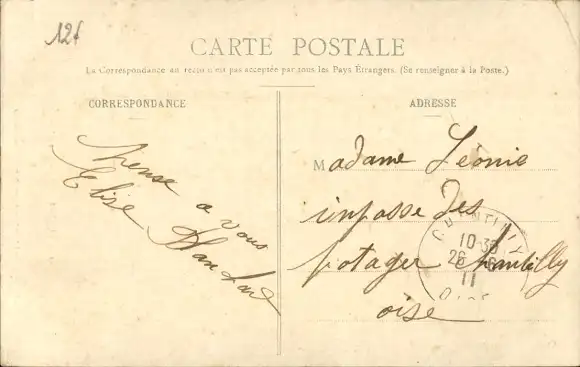 12f
CARTE POSTALE
La Correspondance au recto n'est pas acceptée par tous les Pays Étrangers. (Se renseigner à la Poste.)
CORRESPONDANCE
Pense a vous
Elise Blanchard
ADRESSE
Madame Léonie
impasse des
potager Chantilly
oise
CHANTILLY
10-35
26
11
OISE